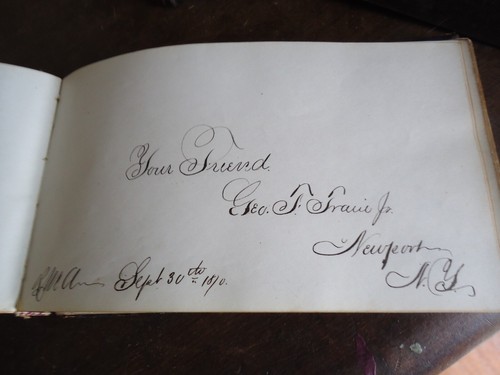 Your Friend.
Geo. F. Travis Jr.
Newport
N.Y.
Sept 30th 1870.